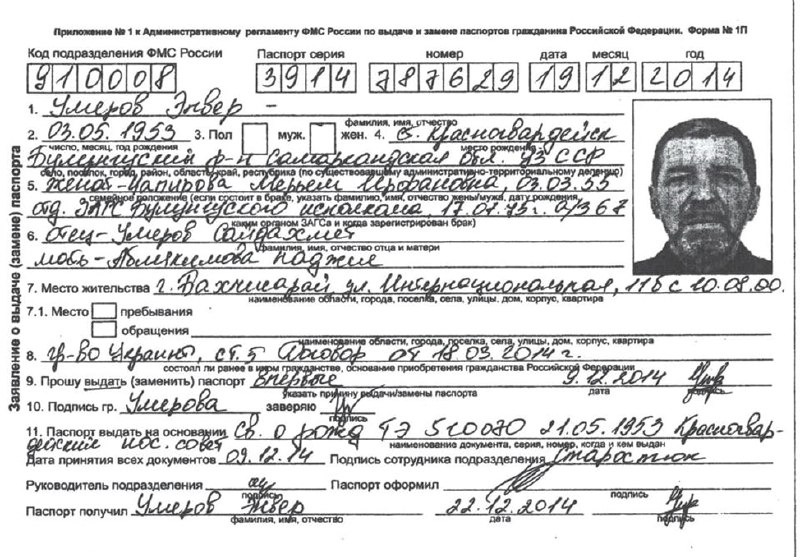 Приложение № 1 к Административному регламенту ФМС России по выдаче и замене паспортов гражданина Российской Федерации. Форма № 1П
Код подразделения ФМС России Паспорт серия номер дата месяц год
910008 3914 787629 19 12 2014
1. Умеров Энвер –
фамилия, имя, отчество
2. 03.05.1953 3. Пол муж. жен. 4. с. Красногвардейск
число, месяц, год рождения место рождения
Булунгуский р-н Самаркандская обл. УзССР
село, поселок, город, район, область, край, республика (по существовавшему административно-территориальному делению)
5. женат - Мерьем Ирфановна, 03.03.55
семейное положение (если состоит в браке, указать фамилию, имя, отчество жены/мужа, дату рождения,
отд. ЗАГС Булунгуского исполкома, 17.07.75г.
каким органом ЗАГСа и когда зарегистрирован брак)
6. отец - Умеров Саидахмет
фамилия, имя, отчество отца и матери
мать - Аблякимова Наджие
7. Место жительства г. Бахчисарай, ул. Интернациональная, с 10.08.00.
наименование области, города, поселка, села, улицы, дом, корпус, квартира
7.1. Место пребывания
обращения
наименование области, города, поселка, села, улицы, дом, корпус, квартира
8. гр-во Украины, ст. 5 Договор от 18.03.2014 г.
состоял ли ранее в ином гражданстве, основание приобретения гражданства Российской Федерации
9. Прошу выдать (заменить) паспорт впервые 9.12.2014
указать причину выдачи/замены паспорта дата подпись
10. Подпись гр. Умерова заверяю
подпись
11. Паспорт выдать на основании Св. о рожд 21.05.1953 Красногвар-
дейский пос. совет наименование документа, серия, номер, когда и кем выдан
Дата принятия всех документов 09.12.14 Подпись сотрудника подразделения Старостюк
Руководитель подразделения Паспорт оформил
подпись подпись
Паспорт получил Умеров Энвер 22.12.2014
фамилия, имя, отчество дата подпись
Заявление о выдаче (замене) паспорта